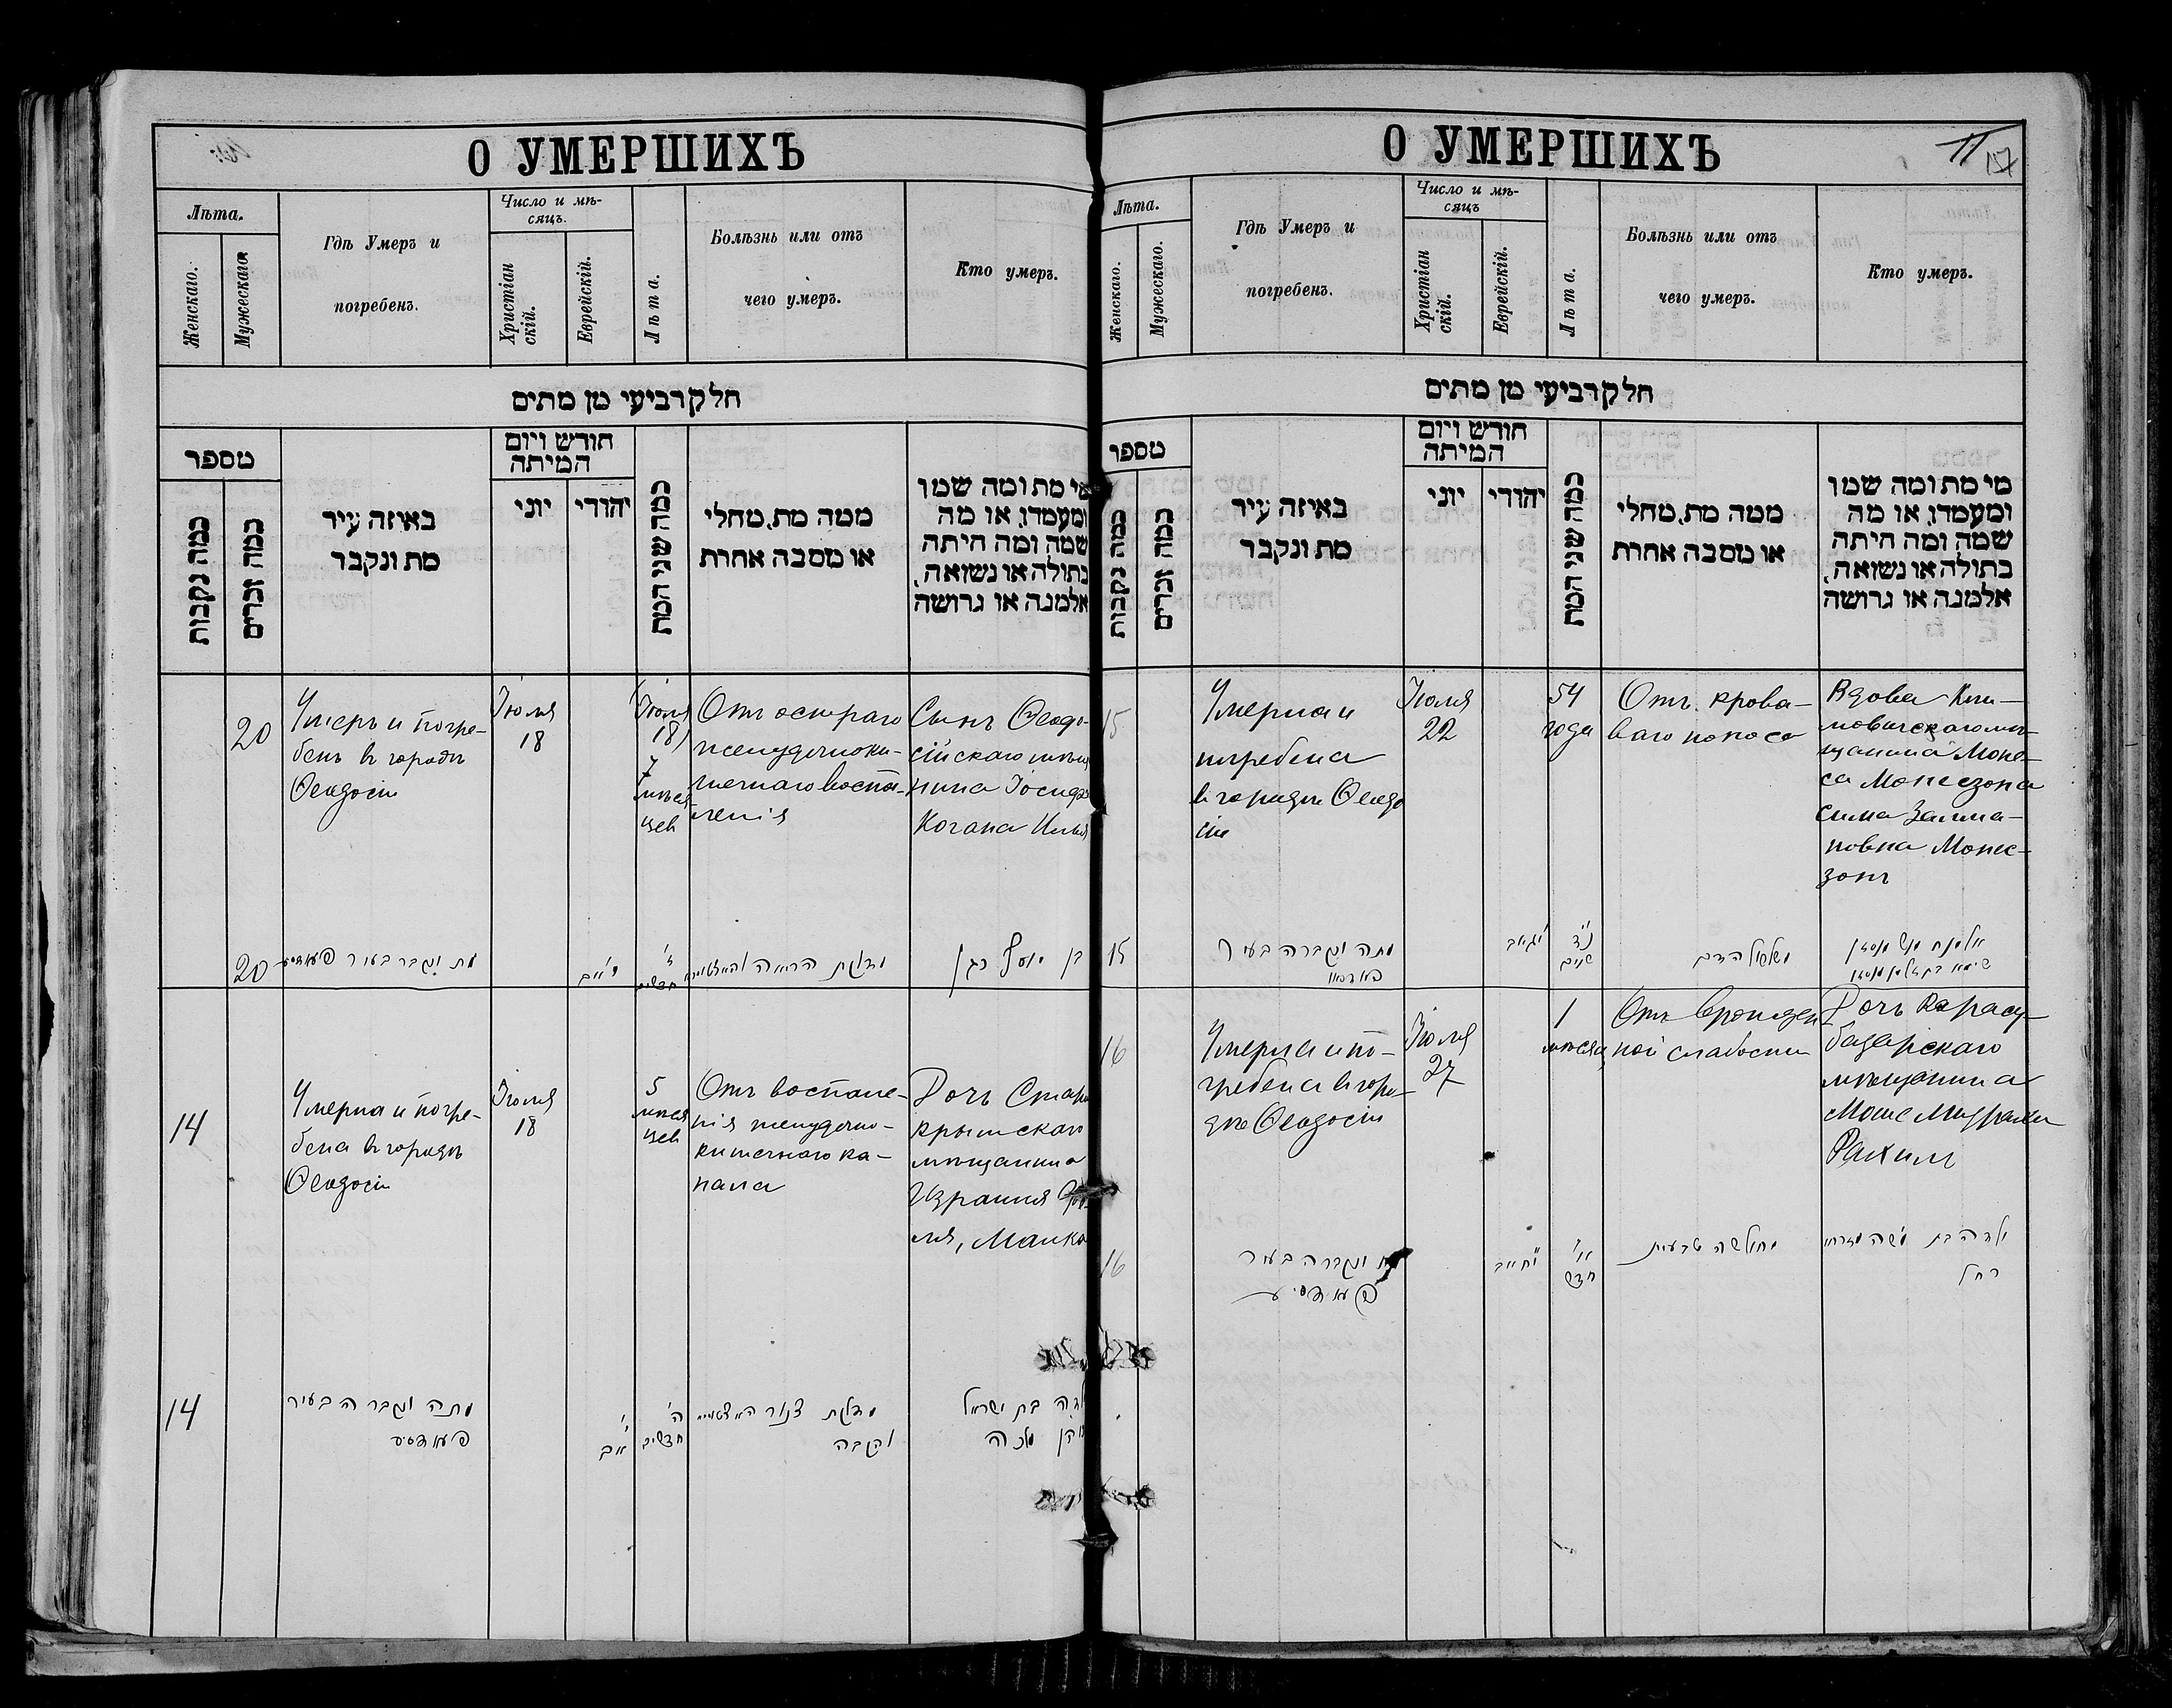 О УМЕРШИХЪ
Лѣта.
Женскаго.
Мужескаго
Гдѣ Умеръ и
погребенъ.
Число и мѣ-
сяцъ.
Христіан
скій.
Еврейскій.
Лѣта.
Болѣзнь или отъ
чего умеръ.
Кто умеръ.
חלק רביעי מן מתים
מספר
כמה נקבות
כמה זכרים
באיזה עיר
מת ונקבר
חודש ויום
המיתה
יוני
יהודי
כמה שני המת
ממה מת, מחלי
או מסבה אחרת
מי מת ומה שמו
ומעמדו, או מה
שמה ומה היתה
בתולה או נשואה,
אלמנה או גרושה
20
Умеръ и погре-
бенъ въ городѣ
Ѳеодосіи
Іюля
18
Іюля
18)
7
мѣся
цев
Отъ остраго
желудочноки-
шечнаго воспа-
ленія
Сынъ Ѳеодо-
сійскаго мѣща
нина Іосифа
Когана Илья
20
מת ונקבר בעיר
ז'
חדשים
בן יוסף כגן
14
Умерла и погре-
бена въ городѣ
Ѳеодосіи
Іюля
18
5
мѣся
цев
Отъ воспале-
нія желудочно-
кишечнаго ка-
нала
Дочь Старо
крымскаго
мѣщанина
Израиля
ля, Малка
14
מתה ונקברה בעיר
פעאדסיע
י'
אב
ה'
חדשים
מדלקת צנור
וקבה
ילדה בת ישראל
מלכה
О УМЕРШИХЪ
11
17
Лѣта.
Женскаго.
Мужескаго.
Гдѣ Умеръ и
погребенъ.
Число и мѣ-
сяцъ
Христіан
скій.
Еврейскій.
Лѣта.
Болѣзнь или отъ
чего умеръ.
Кто умеръ.
חלק רביעי מן מתים
מספר
כמה נקבות
כמה זכרים
באיזה עיר
מת ונקבר
חודש ויום
המיתה
יוני
יהודי
כמה שני המת
ממה מת, מחלי
או מסבה אחרת
מי מת ומה שמו
ומעמדו, או מה
שמה ומה היתה
בתולה או נשואה,
אלמנה או גרושה
15
Умерла и
погребена
въ городѣ Ѳеодо
сіи
Іюля
22
54
года
Отъ крова-
ваго поноса
Вдова Кли-
мовичскаго мѣ-
щанина Моне-
са Монесзона
Сима Залма-
новна Монес-
зонъ
15
מתה ונקברה בעיר
י"ד אב
נ"ד
שנים
משלשול הדם
16
Умерла и по-
гребена въ горо-
дѣ Ѳеодосіи
Іюля
27
1
мѣсяц
Отъ врожден
ной слабости
Дочь Карасу-
базарскаго
мѣщанина
Моше Мизрахи
Рахиль
16
ונקברה בעיר
פעאדסיע
י"ח אב
א'
חדש
מחולשה טבעית
ילדה בת משה מזרחי
רחל